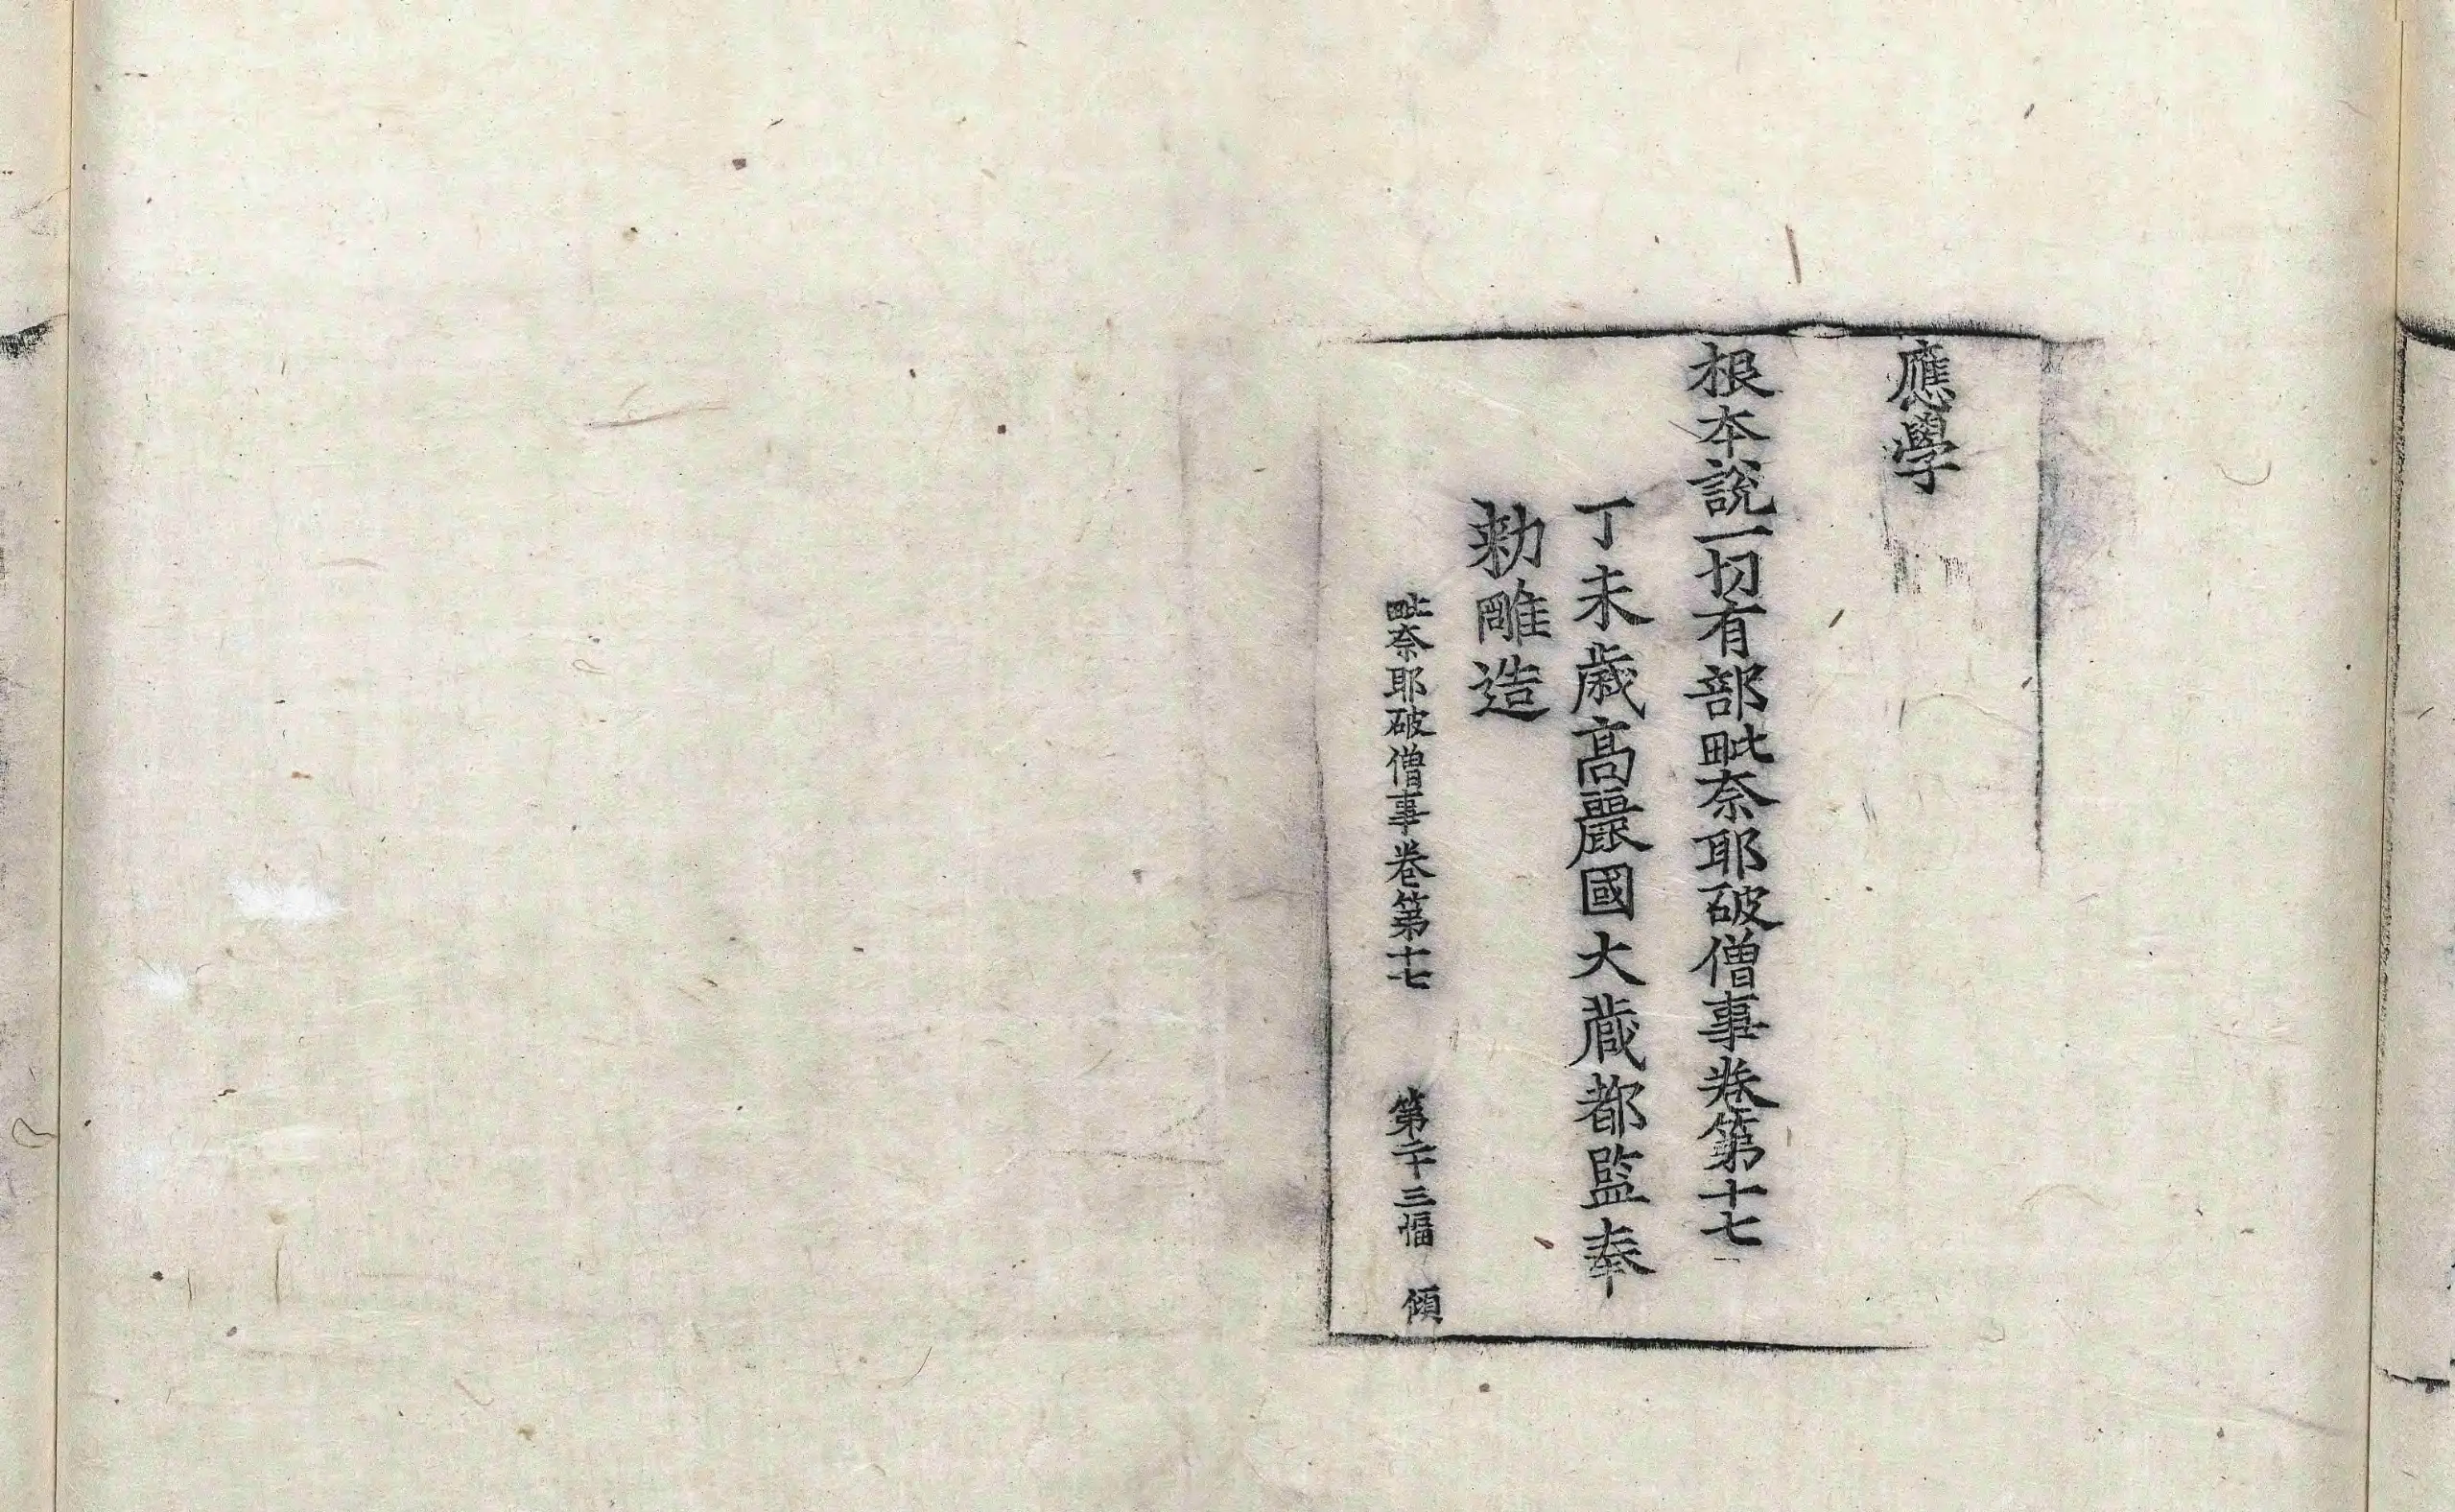 應學
根本說一切有部毗奈耶破僧事卷第十七
丁未歲高麗國大藏都監奉
勑雕造
毗奈耶破僧事卷第十七 第二十三幅 傾